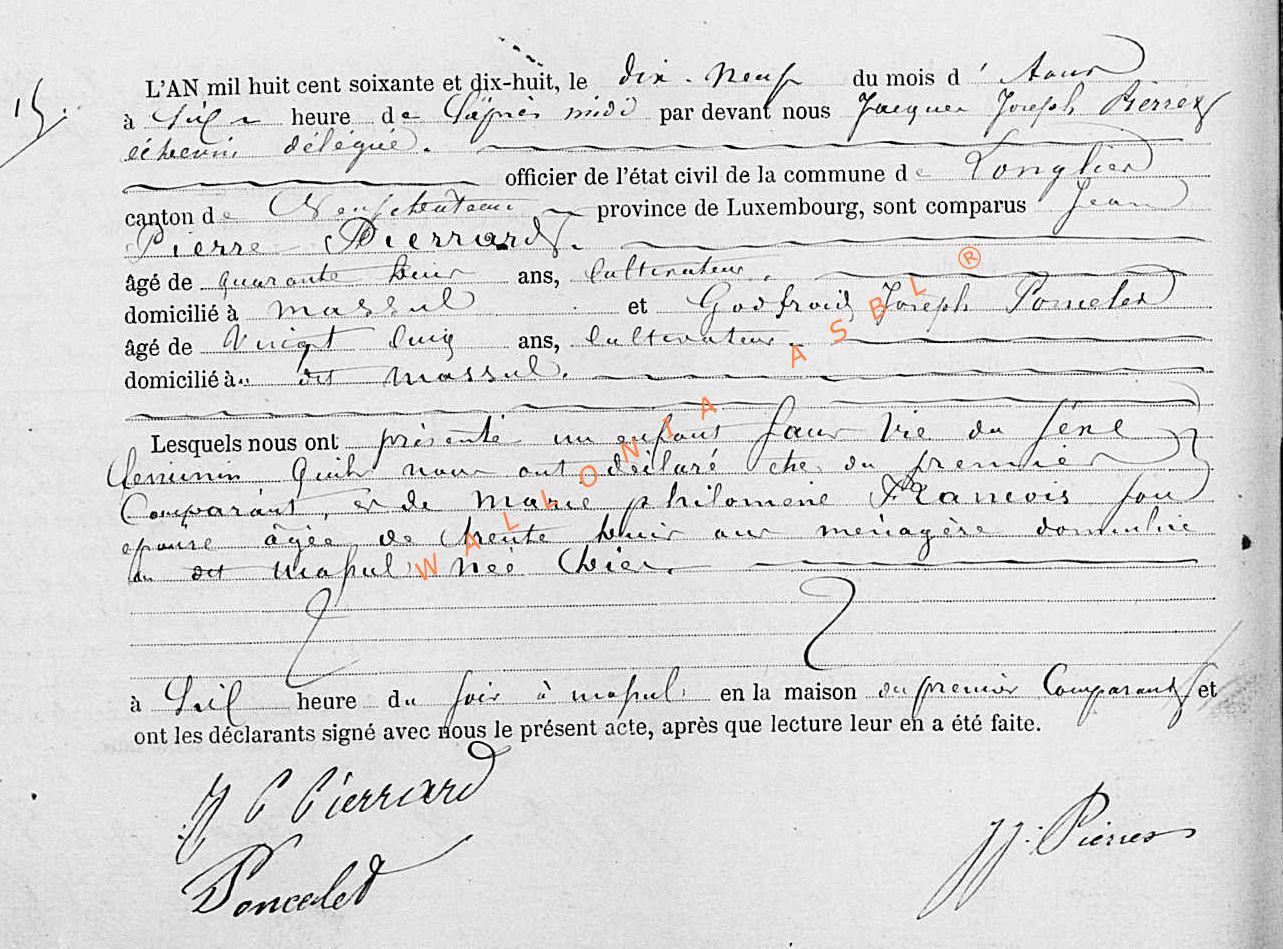 15.
L'AN mil huit cent soixante et dix-huit, le dix-neuf du mois d'Aout
à Six heure de L'après midi par devant nous Jacques Joseph Pierres
échevin délégué.
officier de l'état civil de la commune de Longlier
canton de Neufchâteau province de Luxembourg, sont comparus Jean
Pierre Pierrard.
âgé de quarante huit ans, Cultivateur.
domicilié à Massul et Godfroid Joseph Poncelet
âgé de Vingt Cinq ans, Cultivateur.
domicilié à dit Massul.
Lesquels nous ont présenté un enfant Sans Vie du Sexe
feminin Quils nous ont déclaré du premier
Comparant, et de Marie philomene Francois son
epouse âgée de trente huit ans menagère domicilié
au dit Massul né hier.
à Six heure du soir à massul en la maison du premier Comparant et
ont les déclarants signé avec nous le présent acte, après que lecture leur en a été faite.
J P Pierrard
Poncelet
J J. Pierres
WALLONIA ASBL ®